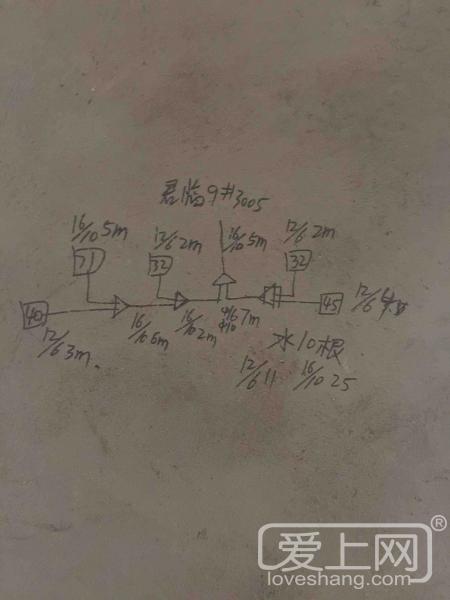 君临9#3005
16/10 5m
12/6 2m
16/10 5m
12/6 2m
71
32
32
40
45
12/6
12/6 3m
16/10 6m
16/10 2m
7m
水10根
12/6 11
16/10 25
爱上网®
loveshang.com